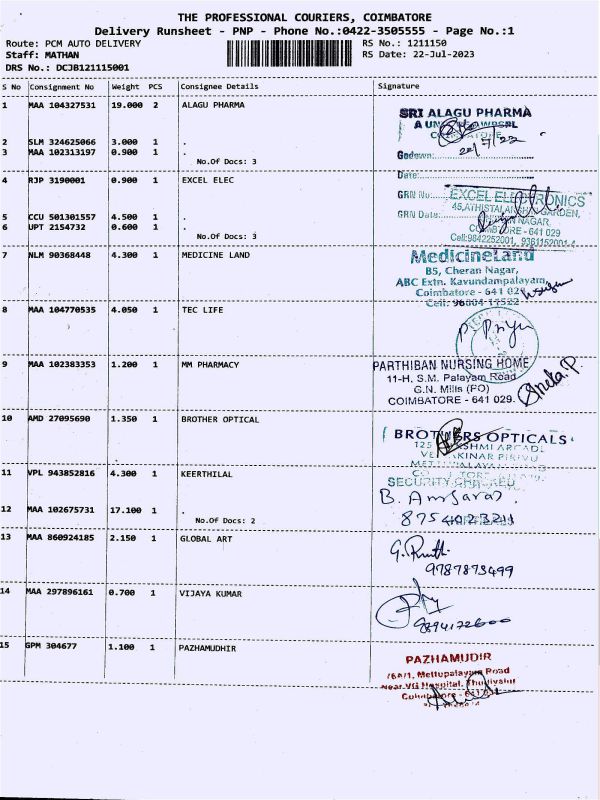 THE PROFESSIONAL COURIERS, COIMBATORE
Delivery Runsheet - PNP - Phone No.:0422-3505555 - Page No.:1
Route: PCM AUTO DELIVERY RS No.: 1211150
Staff: MATHAN RS Date: 22-Jul-2023
DRS No.: DCJB121115001
S No Consignment No Weight PCS Consignee Details Signature
1 MAA 104327531 19.000 2 ALAGU PHARMA
SRI ALAGU PHARMA
2 SLM 324625066 3.000 1 .
3 MAA 102313197 0.900 1 .
No.Of Docs: 3
Godown:
Date:
4 RJP 3190001 0.900 1 EXCEL ELEC
GRN No:
EXCEL ELECTRONICS
GRN Date:
5 CCU 501301557 4.500 1 .
6 UPT 2154732 0.600 1 .
No.Of Docs: 3
COIMBATORE - 641 029
Cell:9842252001, 9361152001
7 NLM 90368448 4.300 1 MEDICINE LAND
MedicineLand
B5, Cheran Nagar,
ABC Extn. Kavundampalayam,
Coimbatore - 641 029
8 MAA 104770535 4.050 1 TEC LIFE
P. Priya
9 MAA 102383353 1.200 1 MM PHARMACY
PARTHIBAN NURSING HOME
11-H, S.M. Palayam Road
G.N. Mills (PO)
COIMBATORE - 641 029.
Sneka.P.
10 AMD 27095690 1.350 1 BROTHER OPTICAL
BROTHERS OPTICALS
11 VPL 943852816 4.300 1 KEERTHILAL
SECURITY CHECKED
12 MAA 102675731 17.100 1 .
No.Of Docs: 2
13 MAA 860924185 2.150 1 GLOBAL ART
9787873499
14 MAA 297896161 0.700 1 VIJAYA KUMAR
15 GPM 304677 1.100 1 PAZHAMUDHIR
PAZHAMUDIR
Mettupalayam Road
Near VG Hospital, Thudiyalur
Coimbatore